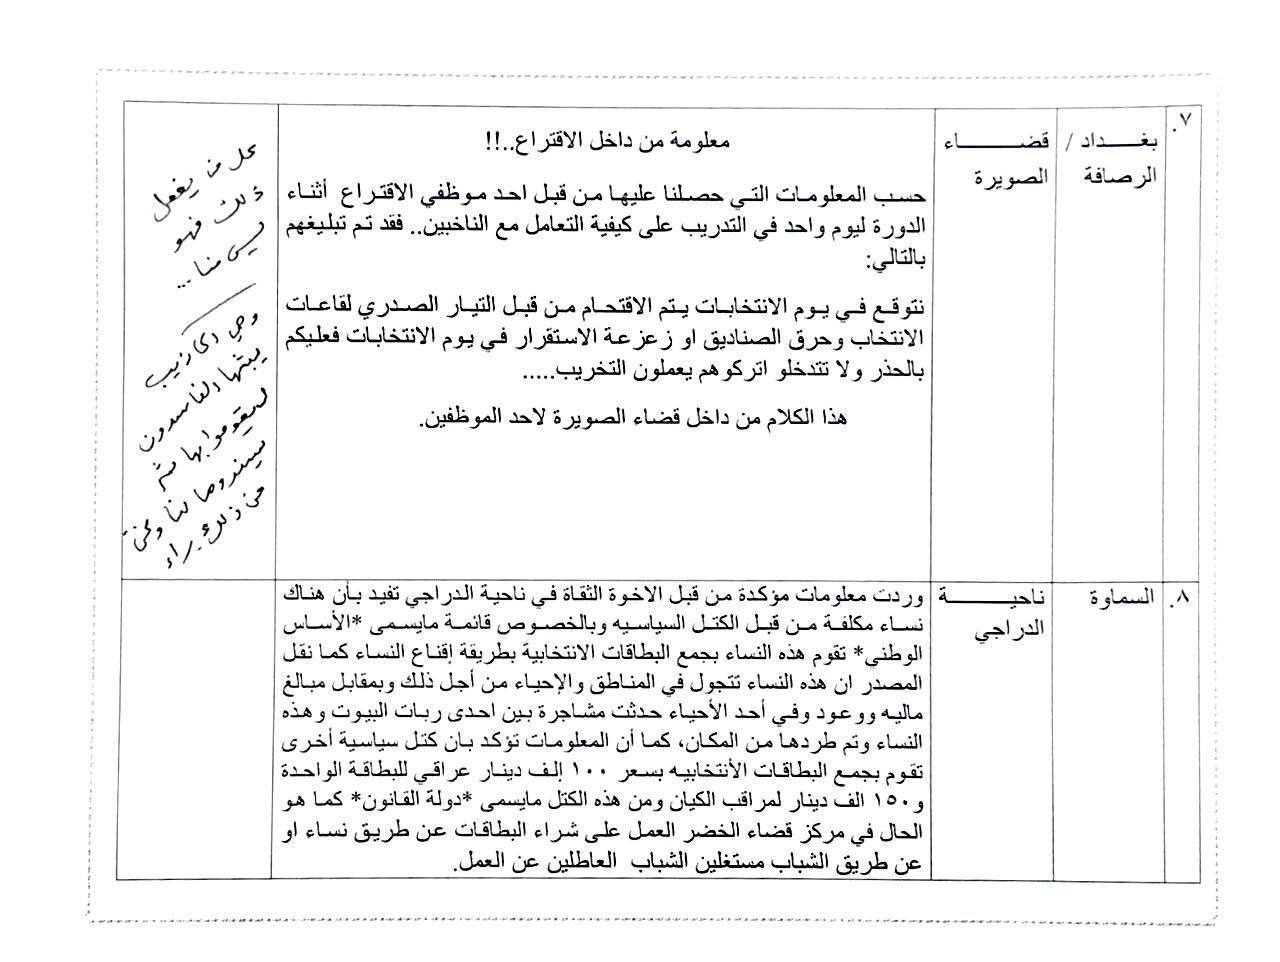 ٧.
بغداد / الرصافة
قضاء الصويرة
معلومة من داخل الاقتراع..!!
حسب المعلومات التي حصلنا عليها من قبل احد موظفي الاقتراع أثناء
الدورة ليوم واحد في التدريب على كيفية التعامل مع الناخبين.. فقد تم تبليغهم
بالتالي:
نتوقع في يوم الانتخابات يتم الاقتحام من قبل التيار الصدري لقاعات
الانتخاب وحرق الصناديق او زعزعة الاستقرار في يوم الانتخابات فعليكم
بالحذر ولا تتدخلو اتركوهم يعملون التخريب.....
هذا الكلام من داخل قضاء الصويرة لاحد الموظفين.
كل من يفعل
ذلك فهو
ليس منا ...
وهي اكاذيب
يبثها الفاسدون
ليقوموا بها ثم
سيسندوها لنا ونحن
من ذلك براء
٨.
السماوة
ناحية
الدراجي
وردت معلومات مؤكدة من قبل الاخوة الثقاة في ناحية الدراجي تفيد بأن هناك
نساء مكلفة من قبل الكتل السياسيه وبالخصوص قائمة مايسمى *الأساس
الوطني* تقوم هذه النساء بجمع البطاقات الانتخابية بطريقة إقناع النساء كما نقل
المصدر ان هذه النساء تتجول في المناطق والإحياء من أجل ذلك وبمقابل مبالغ
ماليه ووعود وفي أحد الأحياء حدثت مشاجرة بين احدى ربات البيوت وهذه
النساء وتم طردها من المكان، كما أن المعلومات تؤكد بان كتل سياسية أخرى
تقوم بجمع البطاقات الأنتخابيه بسعر ١٠٠ إلف دينار عراقي للبطاقة الواحدة
و١٥٠ الف دينار لمراقب الكيان ومن هذه الكتل مايسمى *دولة القانون* كما هو
الحال في مركز قضاء الخضر العمل على شراء البطاقات عن طريق نساء او
عن طريق الشباب مستغلين الشباب العاطلين عن العمل.